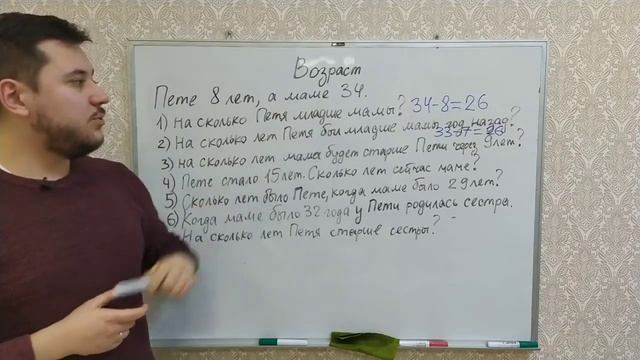 Возраст
Пете 8 лет, а маме 34.
1) На сколько Петя младше мамы? 34-8=26
2) На сколько лет Петя был младше мамы год назад?
33-7=26
3) На сколько лет мама будет старше Пети через 9 лет?
4) Пете стало 15 лет. Сколько лет сейчас маме?
5) Сколько лет было Пете, когда маме было 29 лет?
6) Когда маме было 32 года у Пети родилась сестра.
На сколько лет Петя старше сестры?